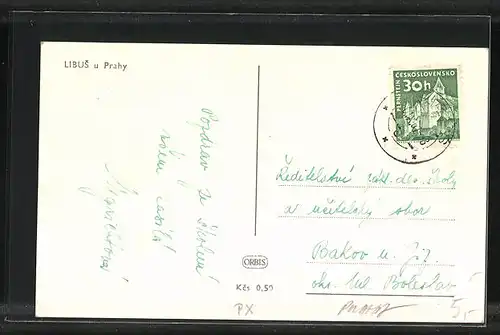 LIBUŠ u Prahy
Pozdrav ze školení
všem
ČESKOSLOVENSKO
30h
PERNŠTEJN
Ředitelství zákl. dev. školy
a učitelský sbor
Bakov n. Jiz.
okr. Ml. Boleslav
ORBIS
Kčs 0,50
PX
5,-